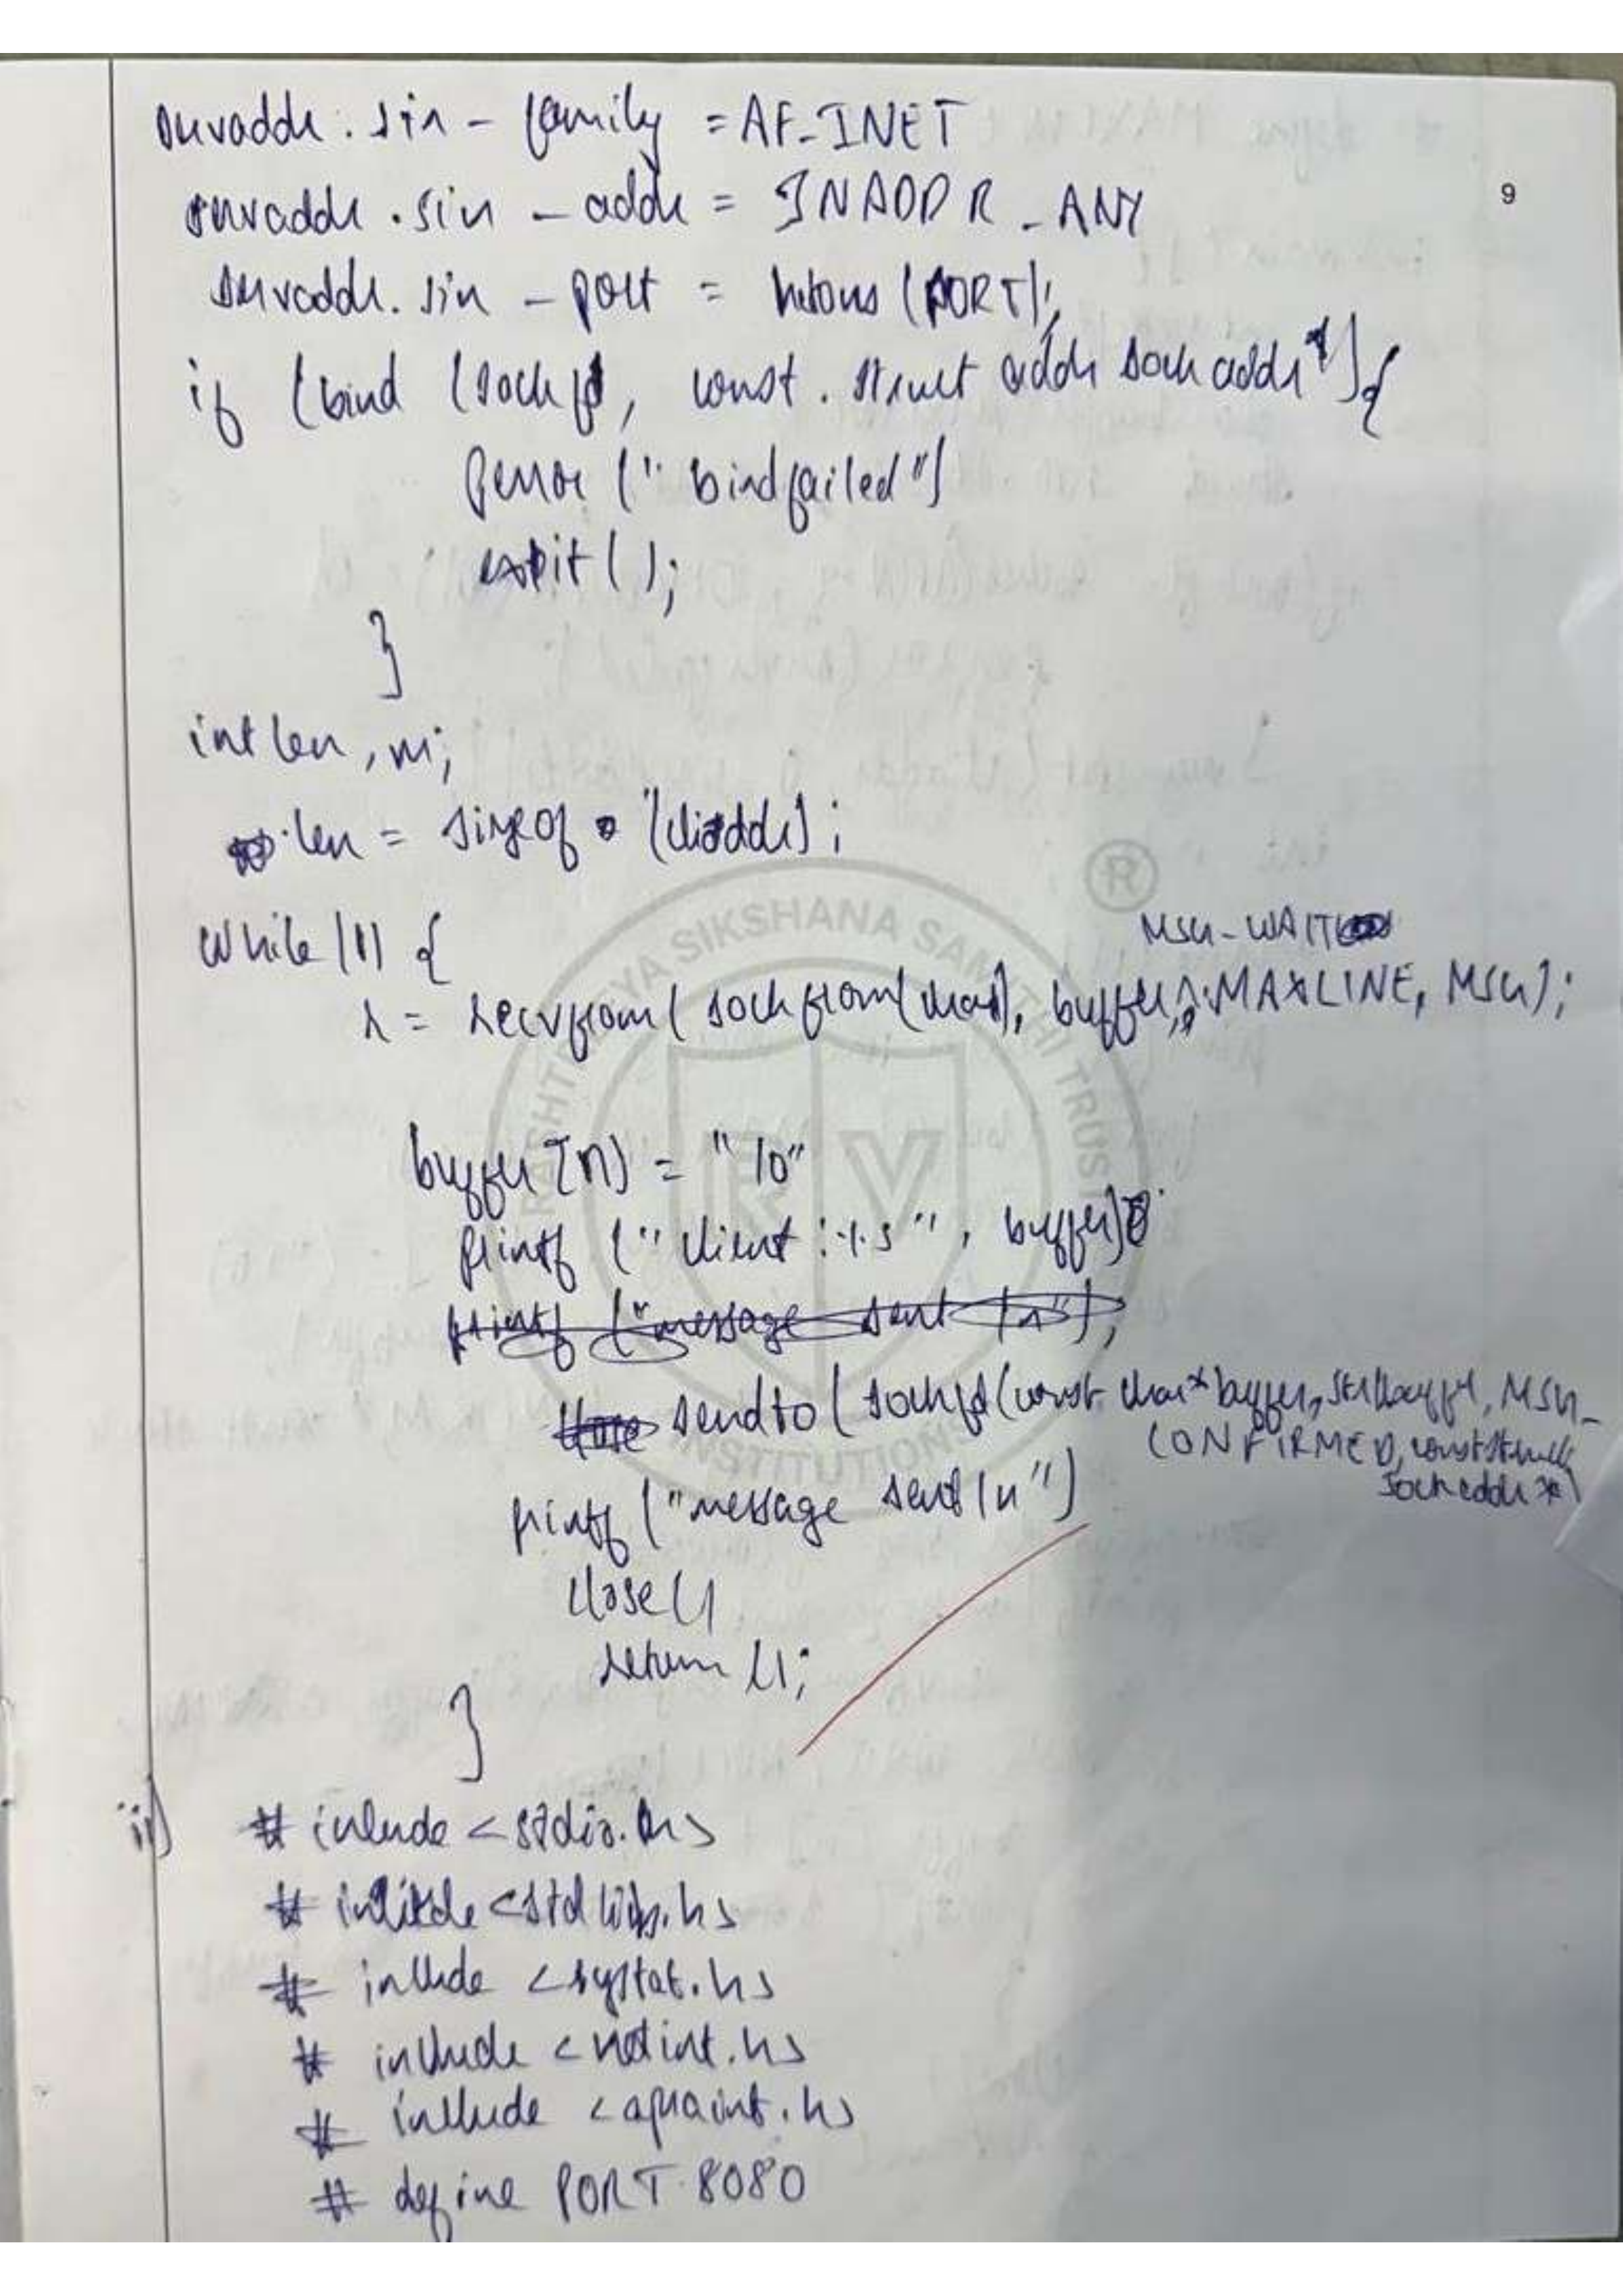 servaddr.sin-family = AF_INET
9
servaddr.sin-addr = INADDR_ANY
servaddr.sin-port = htons (PORT);
if (bind (sockfd, const. struct addr sock addr*)){
perror ("bind failed")
exit();
}
int len, n;
len = sizeof (cliaddr);
while (1) {
MSG-WAIT
n = recvfrom ( sock from (char), buffer, MAXLINE, MSG);
buffer [n] = "\0"
printf ("client :%s", buffer)
printf ("message sent \n");
sendto ( sockfd (const char* buffer, strlbuffer, MSG_
CONFIRMED, const struct
sockaddr *)
printf ("message sent \n")
close()
return ();
}
ii) # include <stdio.h>
# include <stdlib.h>
# include <systat.h>
# include <netint.h>
# include
# define PORT 8080
® RASHTREEYA SIKSHANA SAMITHI TRUST
RV
INSTITUTIONS